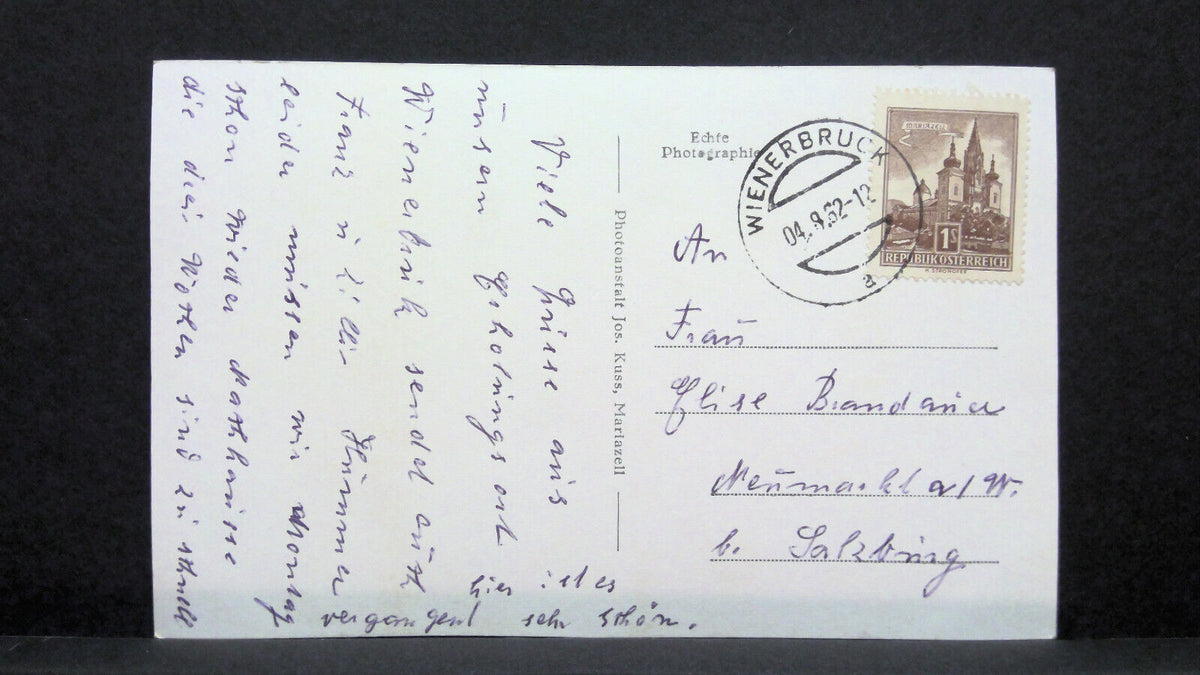 Viele Grüsse aus
unsern Erholungsort
Wienerbruck sendet auch
Franz u Zilli Hummer
leider müssen wir Montag
schon wieder nachhause
die drei Wochen sind zu schnell
vergangen! hier ist es
sehr schön.
Photoanstalt Jos. Kuss, Mariazell
Echte
Photographie
WIENERBRUCK
04.8.62-12
a
MARIAZELL
1S
REPUBLIK ÖSTERREICH
H. STROHOFER
An
Frau
Elise Brandauer
Neumarkt a/W.
b. Salzburg